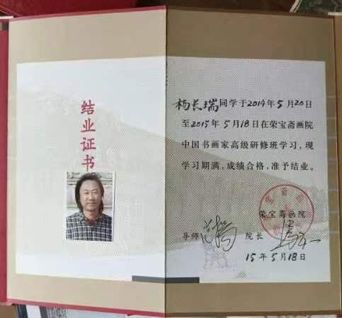 结业证书
杨长瑞同学于2014年5月20日
至2015年5月18日在荣宝斋画院
中国书画家高级研修班学习，现
学习期满，成绩合格，准予结业。
荣宝斋画院
导师 院长
15年5月18日